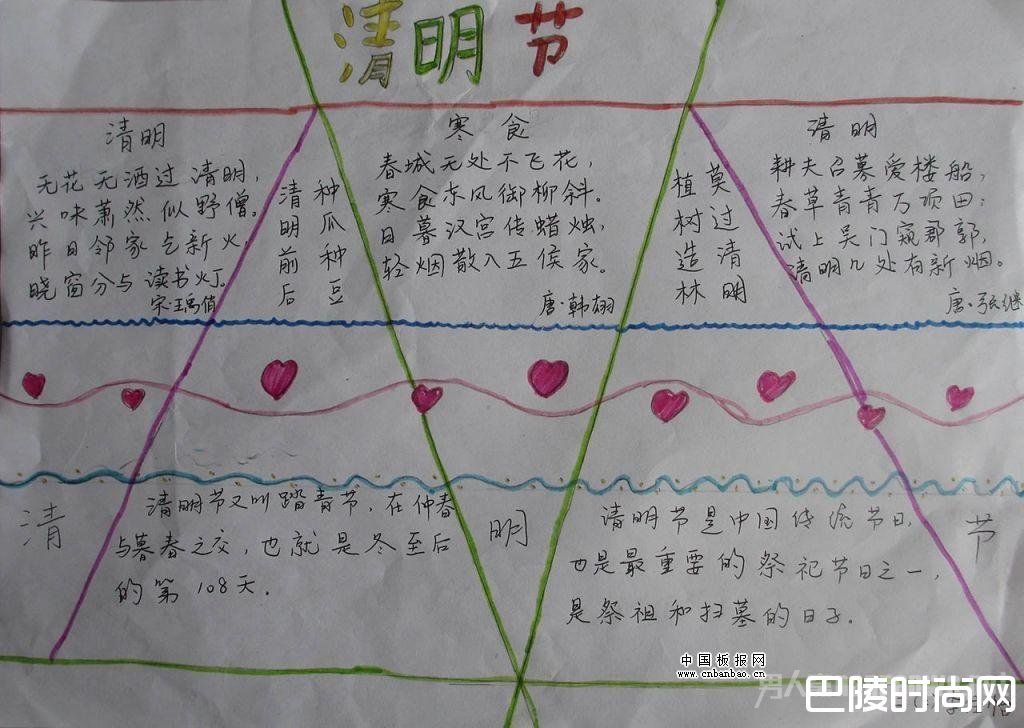 清明节
清明
无花无酒过清明,
兴味萧然似野僧。
昨日邻家乞新火,
晓窗分与读书灯。
宋·王禹
清明前后
种瓜种豆
寒食
春城无处不飞花,
寒食东风御柳斜。
日暮汉宫传蜡烛,
轻烟散入五侯家。
唐·韩翃
植树造林
莫过清明
清明
耕夫召募爱楼船,
春草青青万项田;
试上吴门窥郡郭,
清明几处有新烟。
唐·张继
清
清明节又叫踏青节,在仲春
与暮春之交,也就是冬至后
的第108天.
明
清明节是中国传统节日,
也是最重要的祭祀节日之一,
是祭祖和扫墓的日子.
节
中国板报网
www.cnbanbao.cn
男人
巴陵时尚网